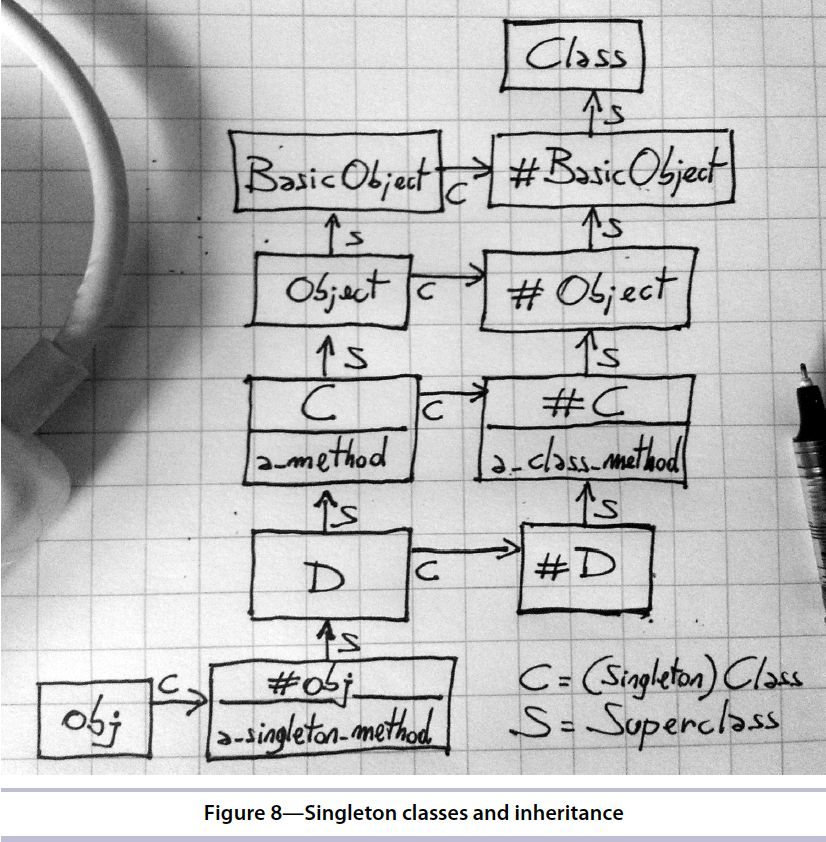 Class
S
BasicObject
C
#BasicObject
S
S
Object
C
# Object
S
S
C
C
#C
a_method
a_class_method
S
S
D
C
#D
S
obj
C
#obj
a_singleton_method
C = (Singleton) Class
S = Superclass
Figure 8—Singleton classes and inheritance